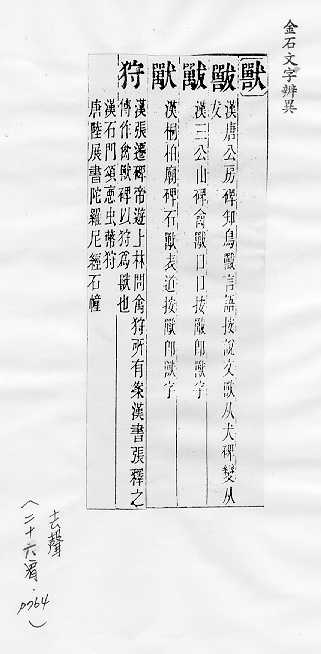 金石文字辨異
獸
獸 漢唐公房碑知鳥獸言語按說文獸从犬碑變从
犮
獸 漢三公山碑禽獸口口按獸卽獸字
獸 漢桐柏廟碑石獸表道按獸卽獸字
狩 漢張遷碑帝遊上林問禽狩所有案漢書張釋之
傳作禽獸碑以狩爲獸也
漢石門頌惡虫蔽狩
唐陸展書陀羅尼經石幢
去聲
(二十六宥.p764)